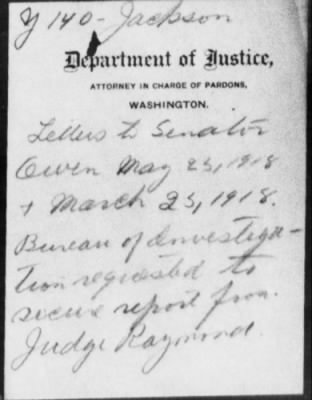 Y 140 - Jackson
Department of Justice,
ATTORNEY IN CHARGE OF PARDONS,
WASHINGTON.
Letters to Senator
Owen May 25, 1918
+ March 25, 1918.
Bureau of Investiga-
tion requested to
secure report from
Judge Raymond.